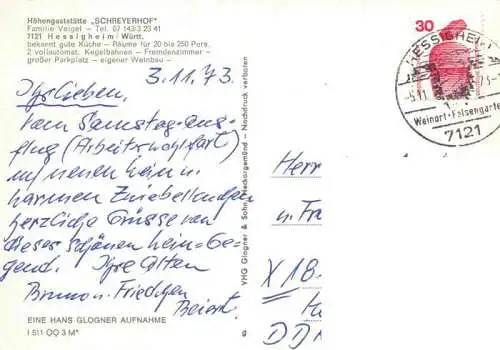 Höhengaststätte „SCHREYERHOF"
Familie Veigel – Tel. 07 143/3 23 41
7121 Hessigheim/Württ.
bekannt gute Küche – Räume für 20 bis 250 Pers.
2 vollautomat. Kegelbahnen – Fremdenzimmer –
großer Parkplatz – eigener Weinbau –
3.11.73.
Ihr Lieben.
Vom Samstag-Aus-
flug (Arbeitswohlfart)
mit neuen Wein u.
warmen Zwiebelkuchen
herzliche Grüsse von
dieser schönen Wein-Ge-
gend. Ihre Alten
Bruno u. Friedchen
Beiert.
EINE HANS GLOGNER AUFNAHME
I 511 OO 3 M*
VHG Glogner & Sohn Neckargemünd – Nachdruck verboten
g
30
HESSIGHEIM
Weinort · Felsengarten
7121
Herr
u. Fra
X 18
DD